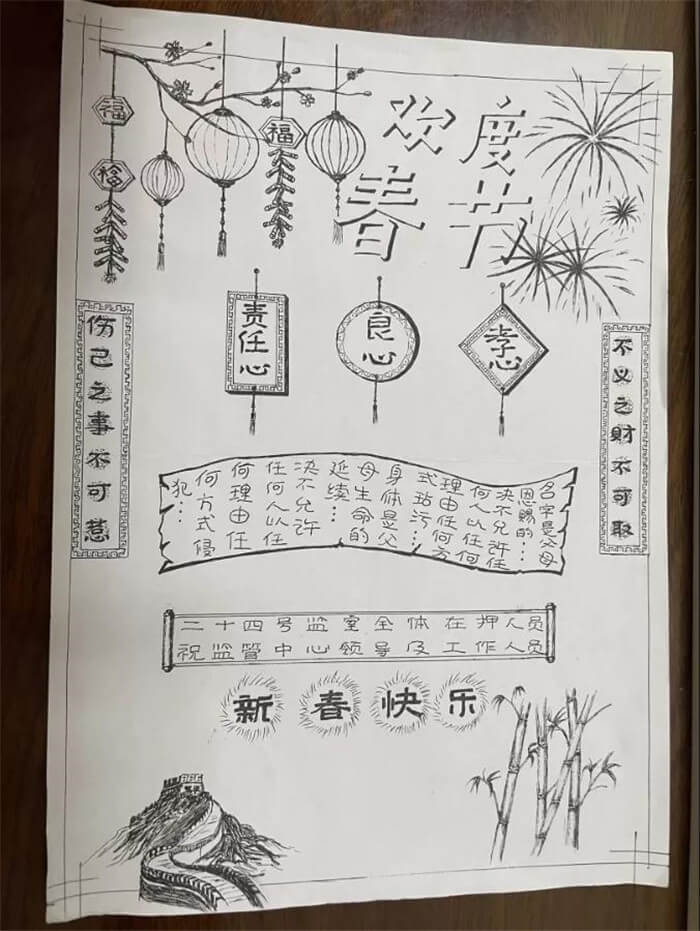 福
福
福
欢度
春节
责任心
良心
孝心
伤己之事不可惹
不义之财不可取
名字是父母
恩赐的…
决不允许任
何人以任何
理由任何方
式玷污…
身体是父
母生命的
延续…
决不允许
任何人以任
何理由任
何方式侵
犯…
二十四号监室全体在押人员
祝监管中心领导及工作人员
新春快乐